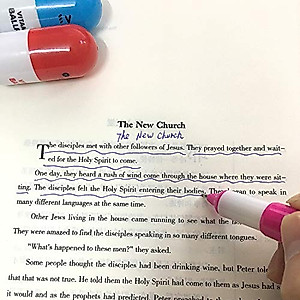 BALL
The New Church
The New Church
The disciples met with other followers of Jesus. They prayed together and wait-
ed for the Holy Spirit to come.
One day, they heard a rush of wind come through the house where they were sit-
ting. The disciples felt the Holy Spirit entering their bodies. They began to speak in
many different languages at the same time.
Other Jews living in the house came running to see what the
They were amazed to find the disciples speaking in so many different tongues.
"What's happened to these men?" they asked.
Some people thought the disciples had been drinking wine, but Peter told
that that was not true. He told them the Holy Spirit had come to them as Jesus had s
it would and as the prophets had predicted. Peter preached to the